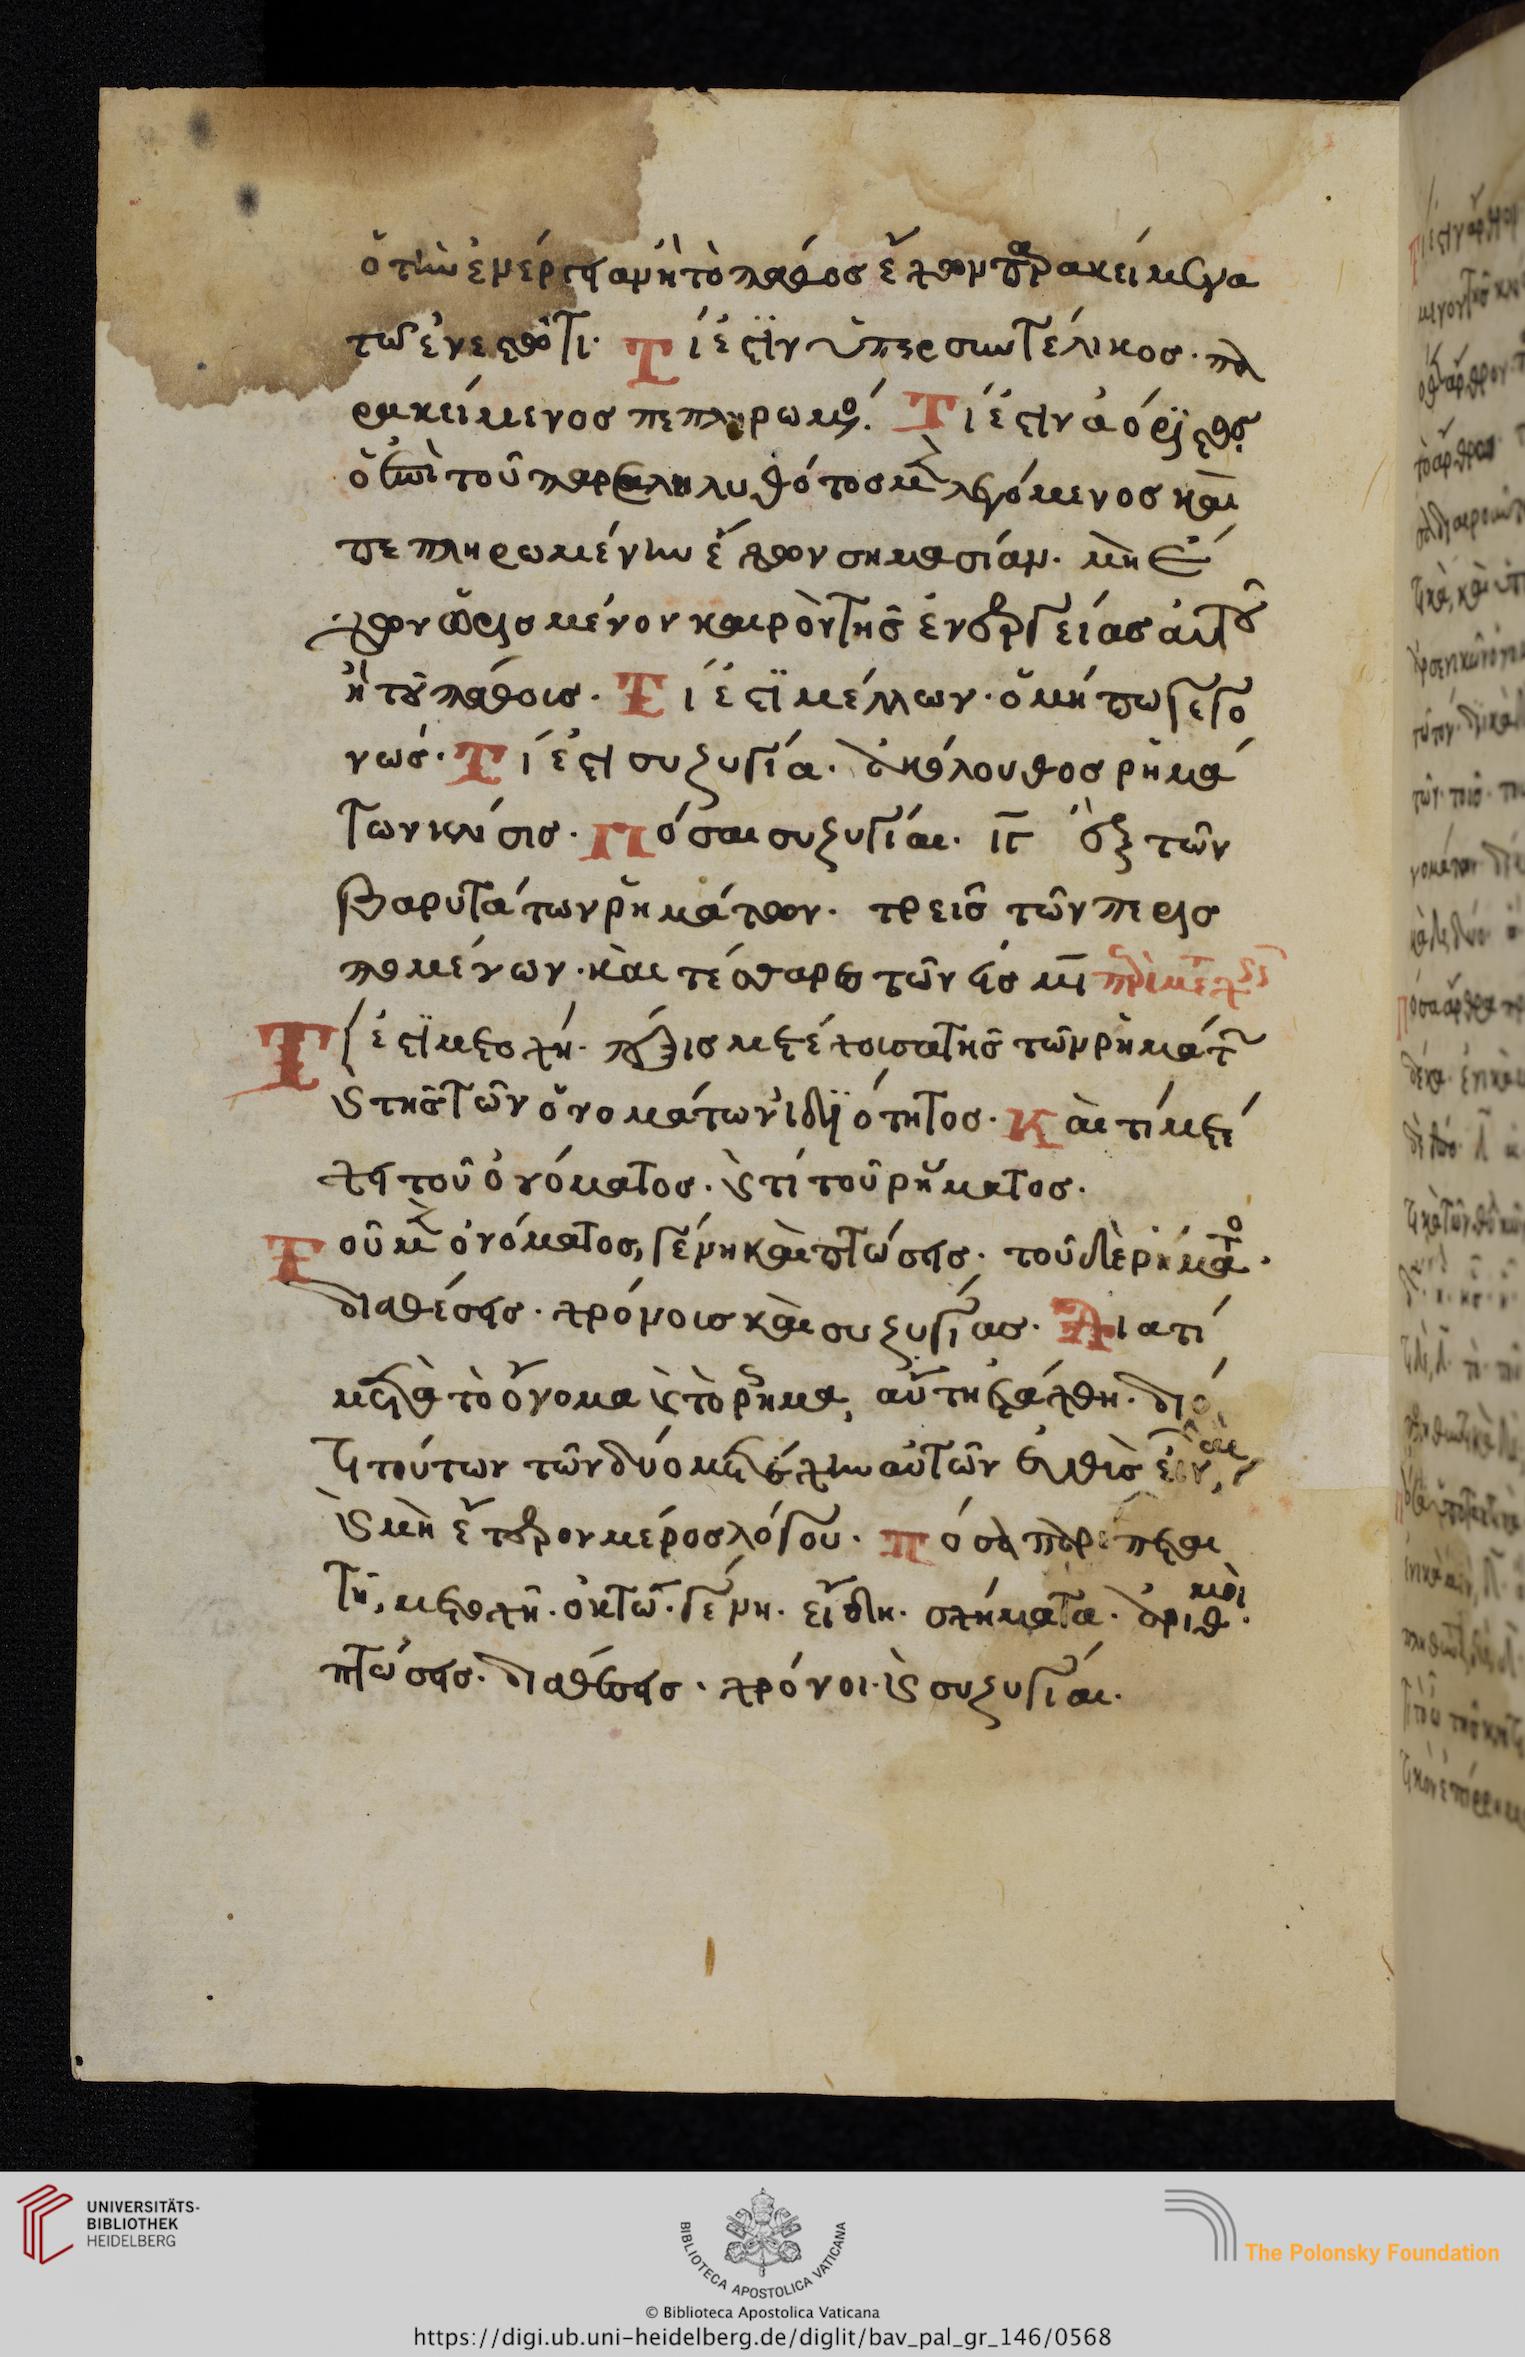 ὁ τὴν ἐνέργειαν ἢ τὸ πάθος ἔχων παρακείμενα
τῶ ἐνεστῶτι. Τί ἐστὶν ὑπερσυντέλικος. πα
ρακείμενος πεπληρωμένος. Τί ἐστὶν ἀόριστος.
ὁ ἐπὶ τοῦ παρεληλυθότος μὲν λεγόμενος καὶ
πεπληρωμένην ἔχων σημασίαν. μὴ ἔ
χων ὡρισμένον καιρὸν τῆς ἐνεργείας αὐτοῦ
ἢ τοῦ πάθοις. Τί ἐστὶ μέλλων. ὁ μήπω γεγο
νώς. Τί ἐστὶ συζυγία. ἀκόλουθος ῥημά
των κλίσις. Πόσαι συζυγίαι. ιγ ἓξ τῶν
βαρυτάτων ῥημάτων. τρεῖς τῶν περισ
πομένων. καὶ τέσσαρες τῶν εἰς μι
Τί ἐστὶ μετοχή. λέξις μετέχοισα τῆς τῶν ῥημάτων
καὶ τῆς τῶν ὀνομάτων ἰδιότητος. Καὶ τί μετέ
χει τοῦ ὀνόματος. καὶ τί τοῦ ῥήματος.
Τοῦ μὲν ὀνόματος, γένη καὶ πτώσεις. τοῦ δὲ ῥήματος.
διαθέσεις. χρόνοις καὶ συζυγίας. Διατί
μετὰ τὸ ὄνομα καὶ τὸ ῥῆμα, αὕτη ἐτάχθη. διό
τι τούτων τῶν δύο μετέχειν αὐτῶν
καὶ μὴ ἕτερον μέρος λόγου. πόσα παρέπεται
τῆ, μετοχῆ. ὀκτώ. γένη. εἴδη. σχήματα. ἀριθμοὶ.
πτώσεις. διαθέσεις. χρόνοι. καὶ συζυγίαι.
UNIVERSITÄTS-
BIBLIOTHEK
HEIDELBERG
BIBLIOTECA APOSTOLICA VATICANA
The Polonsky Foundation
© Biblioteca Apostolica Vaticana
https://digi.ub.uni-heidelberg.de/diglit/bav_pal_gr_146/0568